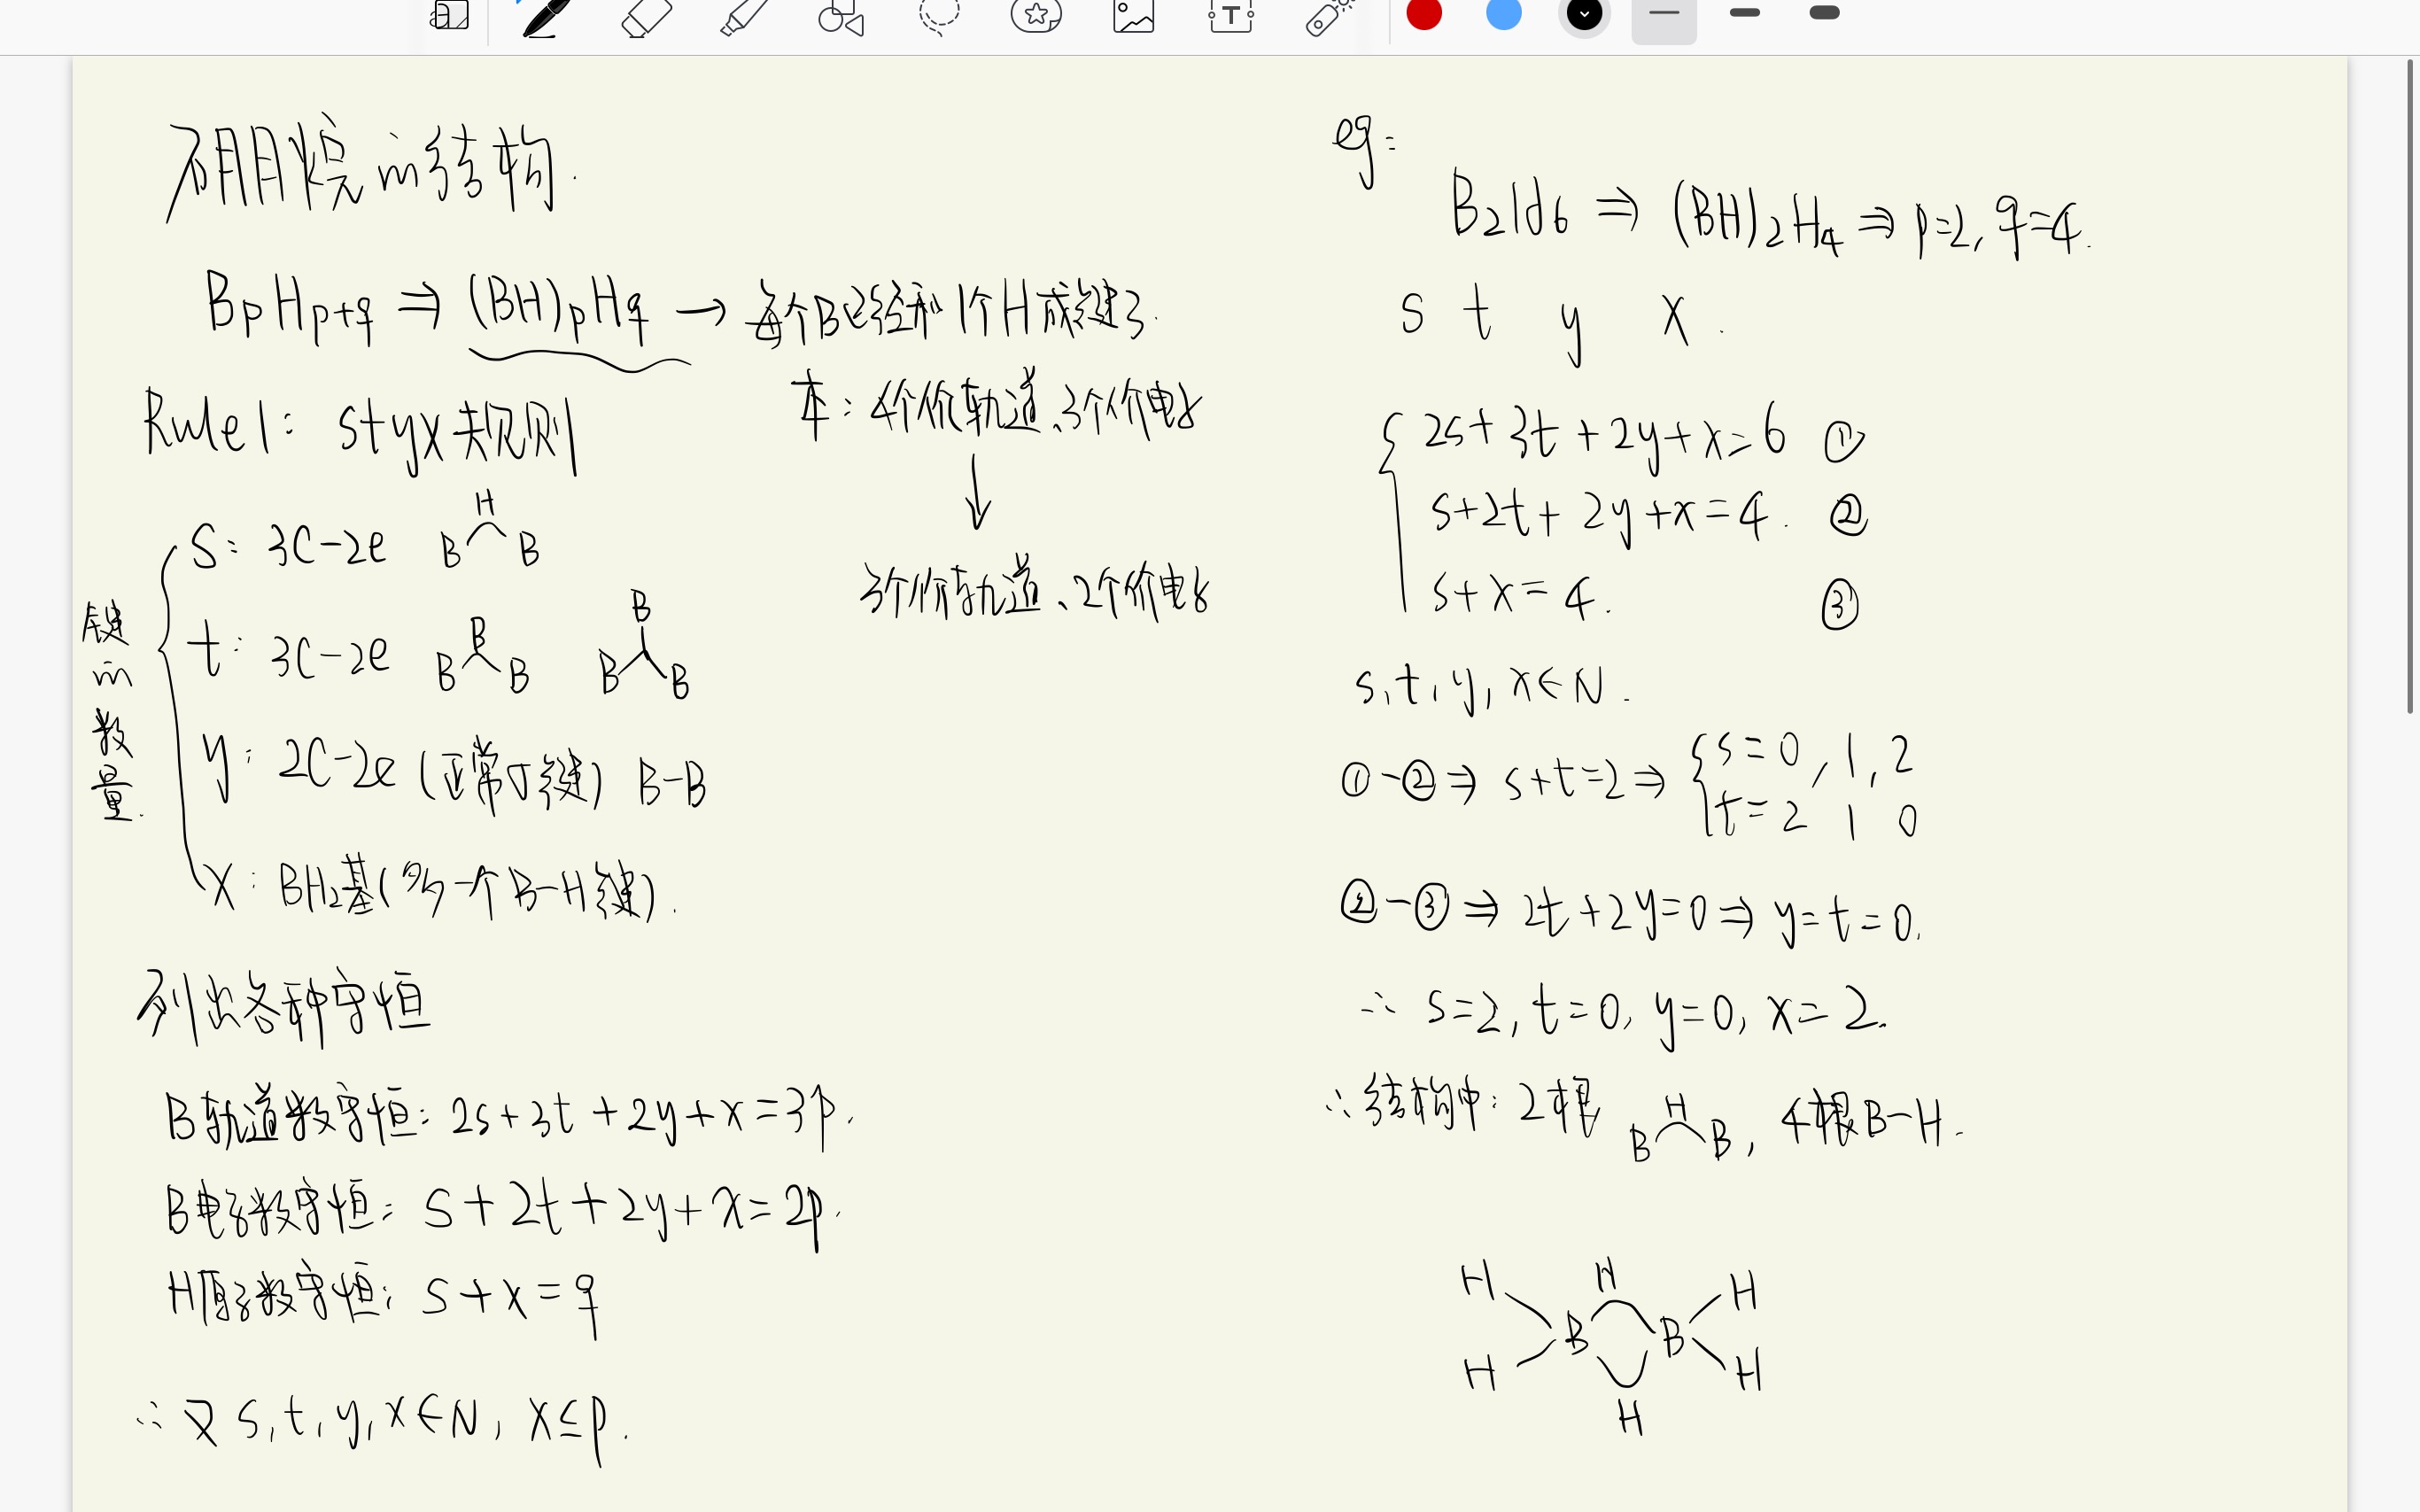 硼烷的结构.
BpHp+q ⇒ (BH)pHq → 每个B已经和1个H成键了.
本: 4个价轨道、3个价电子
↓
3个价轨道、2个价电子
Rule1: styx规则
键的数量.
s: 3C-2e B H B
t: 3C-2e B B B B B B
y: 2C-2e (正常σ键) B-B
x: BH2基(多一个B-H键).
列出各种守恒
B轨道数守恒: 2s+3t+2y+x=3p.
B电子数守恒: s+2t+2y+x=2p.
H原子数守恒: s+x=q
∵ 又 s,t,y,x∈N, x≤p.
eg:
B2H6 ⇒ (BH)2H4 ⇒ p=2, q=4.
s t y x.
2s+3t+2y+x=6 ①
s+2t+2y+x=4. ②
s+x=4. ③
s,t,y,x∈N.
①-②⇒ s+t=2⇒ s=0,1,2
t=2 1 0
②-③⇒ 2t+2y=0⇒ y=t=0.
∴ s=2,t=0,y=0,x=2.
∴结构中: 2根 B H B, 4根B-H.
H H H
B B
H H
H
T